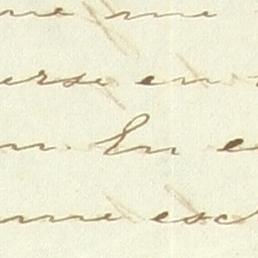 me me
erse en
n. En e
me esc